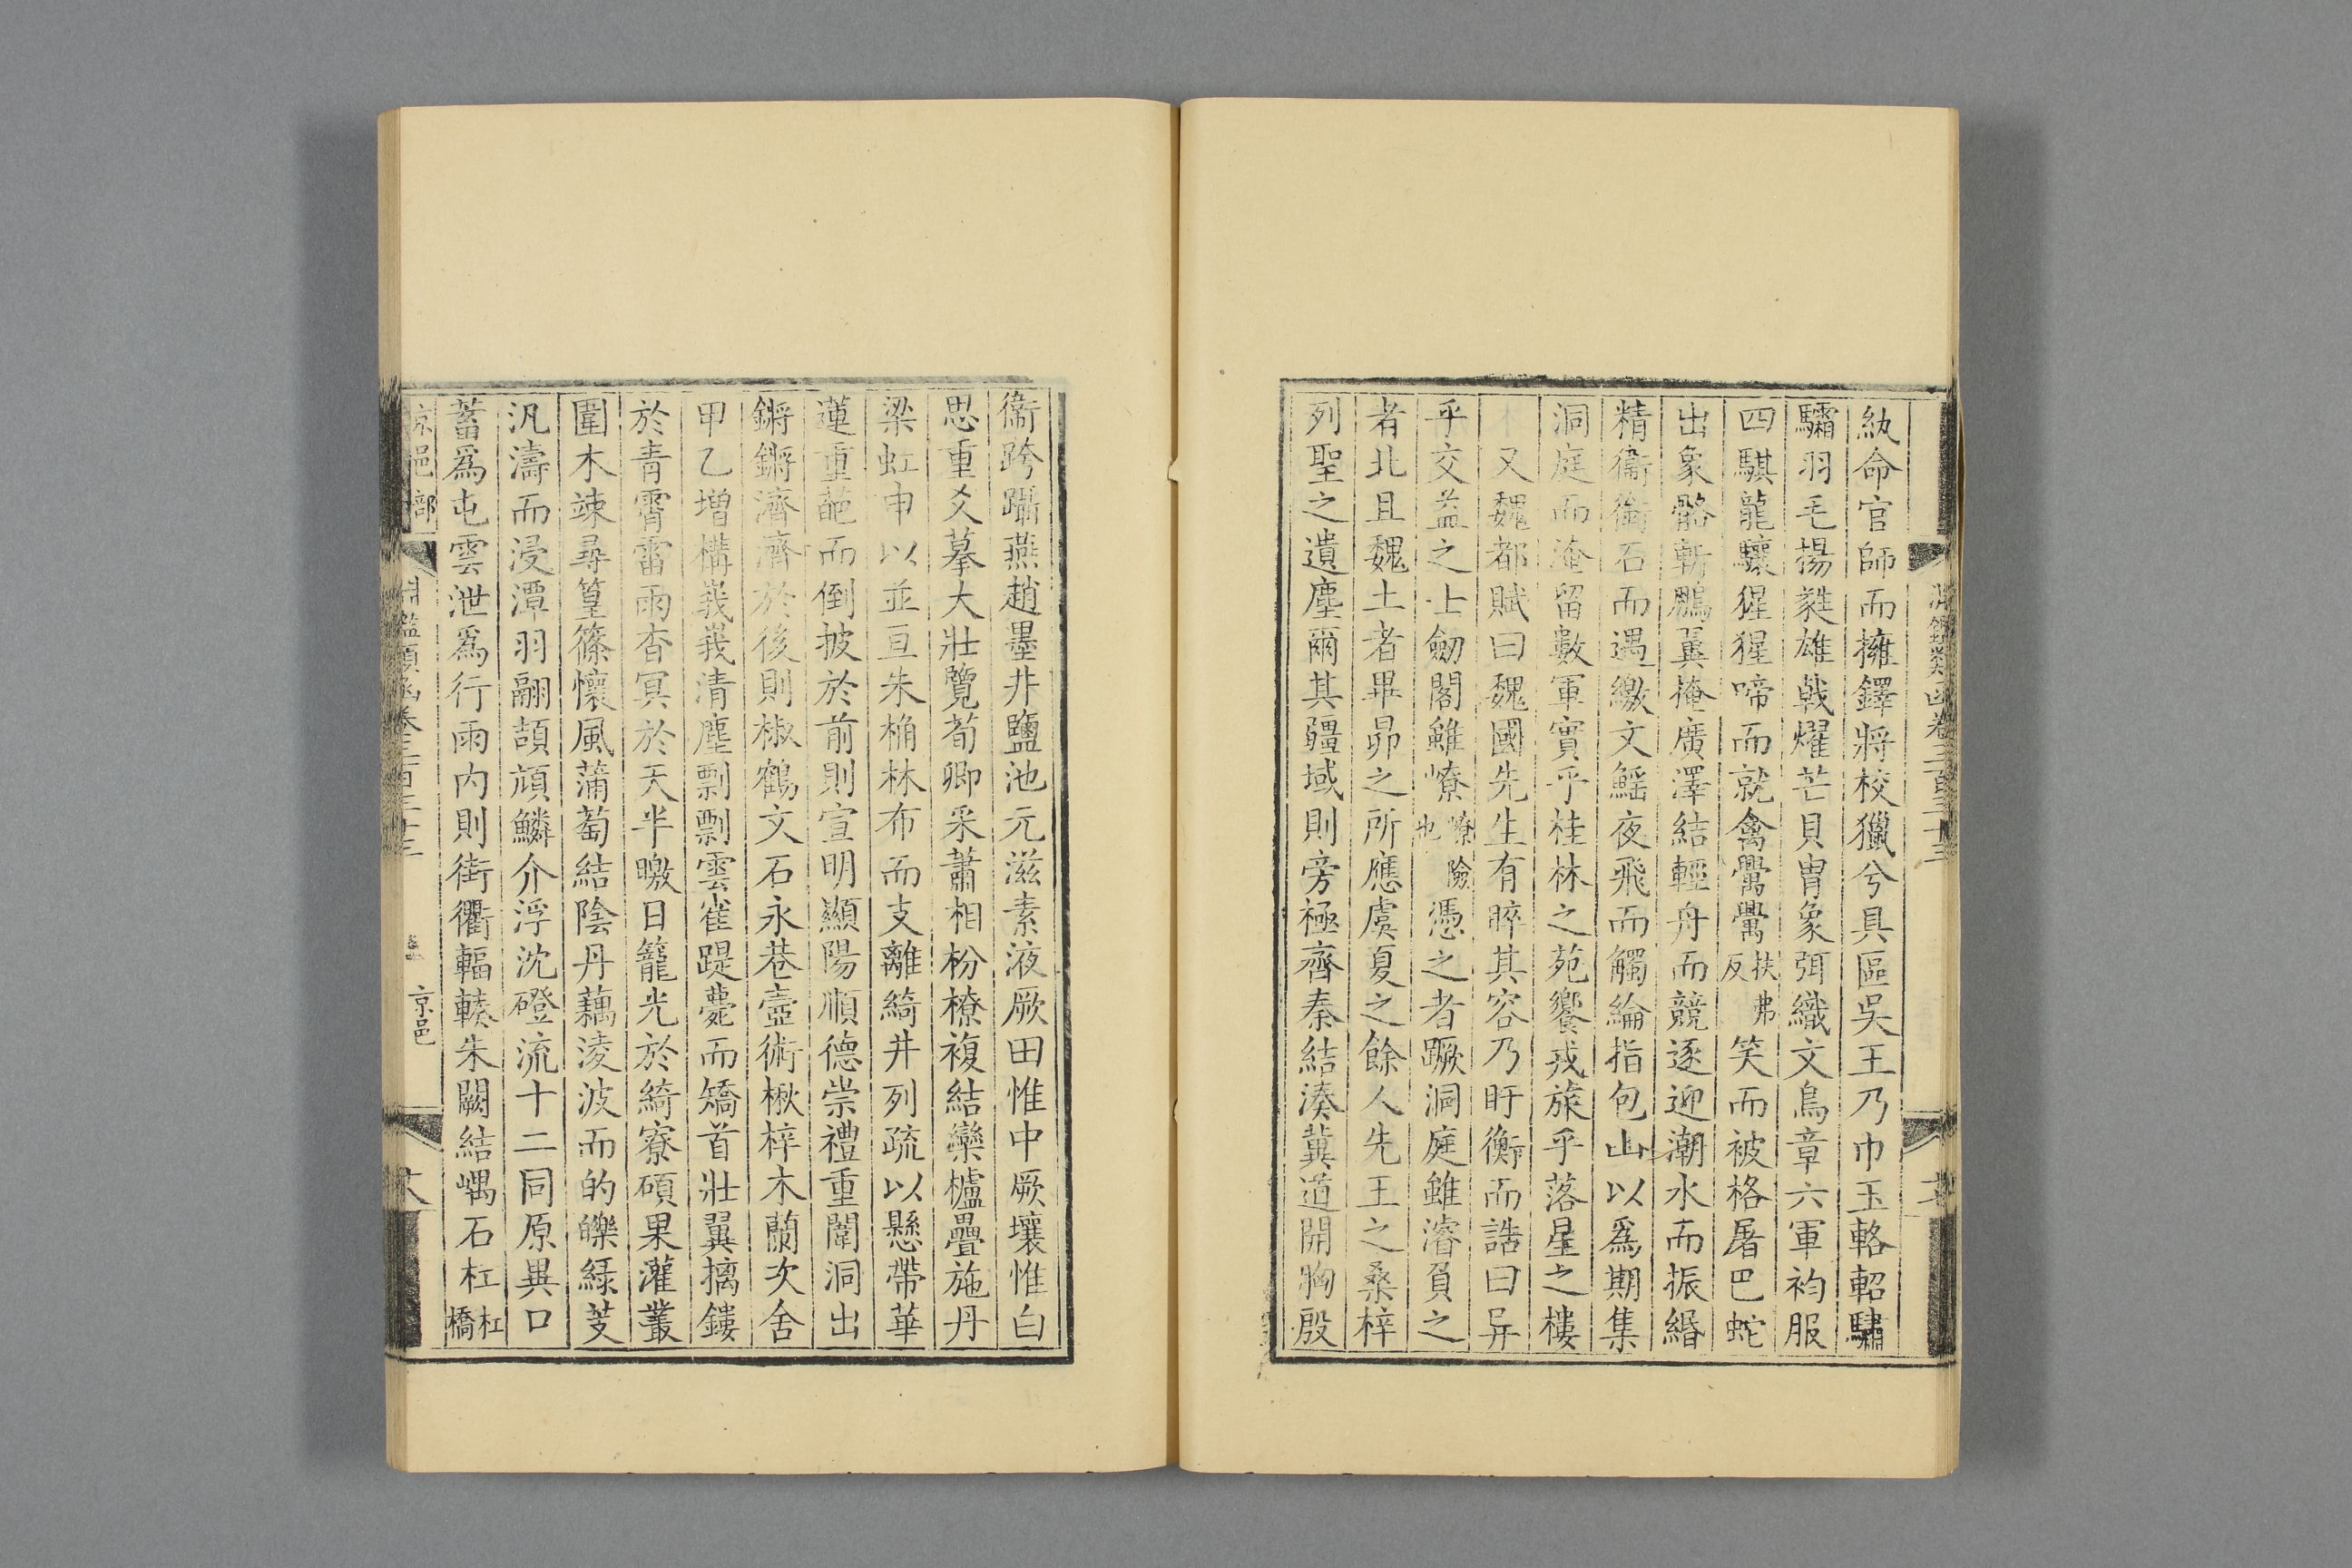 紈命官師而擁鐸將校獵兮具區吳王乃巾玉輅軺驌
驦羽毛揚蕤雄戟燿芒貝胄象弭織文鳥章六軍袀服
四騏龍驤猩猩啼而就禽𥜿𥜿扶弗反笑而被格屠巴蛇
出象骼斬鵬翼掩廣澤結輕舟而競逐迎潮水而振緡
精衞銜石而遇繳文鰩夜飛而觸綸指包山以爲期集
洞庭而淹留數軍實乎桂林之苑饗戎旅乎落星之樓
又魏都賦曰魏國先生有睟其容乃盱衡而誥曰异
乎交益之士劒閣雖嶛嶛險也憑之者蹶洞庭雖濬負之
者北且魏土者畢昴之所應虞夏之餘人先王之桑梓
列聖之遺塵爾其疆域則旁極齊秦結湊冀道開胸殷
衞跨躡燕趙墨井鹽池元滋素液厥田惟中厥壤惟白
思重爻摹大壯覽荀卿采蕭相枌橑複結欒櫨疊施丹
梁虹申以並亘朱桷林布而支離綺井列疏以懸帶華
蓮重葩而倒披於前則宣明顯陽順德崇禮重闈洞出
鏘鏘濟濟於後則椒鶴文石永巷壼術楸梓木蘭次舍
甲乙增構峩峩清塵剽剽雲雀踶甍而矯首壯翼摛鏤
於青霄雷雨杳冥於天半曒日籠光於綺寮碩果灌叢
圍木竦尋篁篠懷風蒲萄結陰丹藕淩波而的皪綠芰
汎濤而浸潭羽翮頡頏鱗介浮沈磴流十二同原異口
蓄爲屯雲泄爲行雨內則街衢輻轃朱闕結嵎石杠杠橋
京邑部
淵鑑類函卷三百三十三
京邑